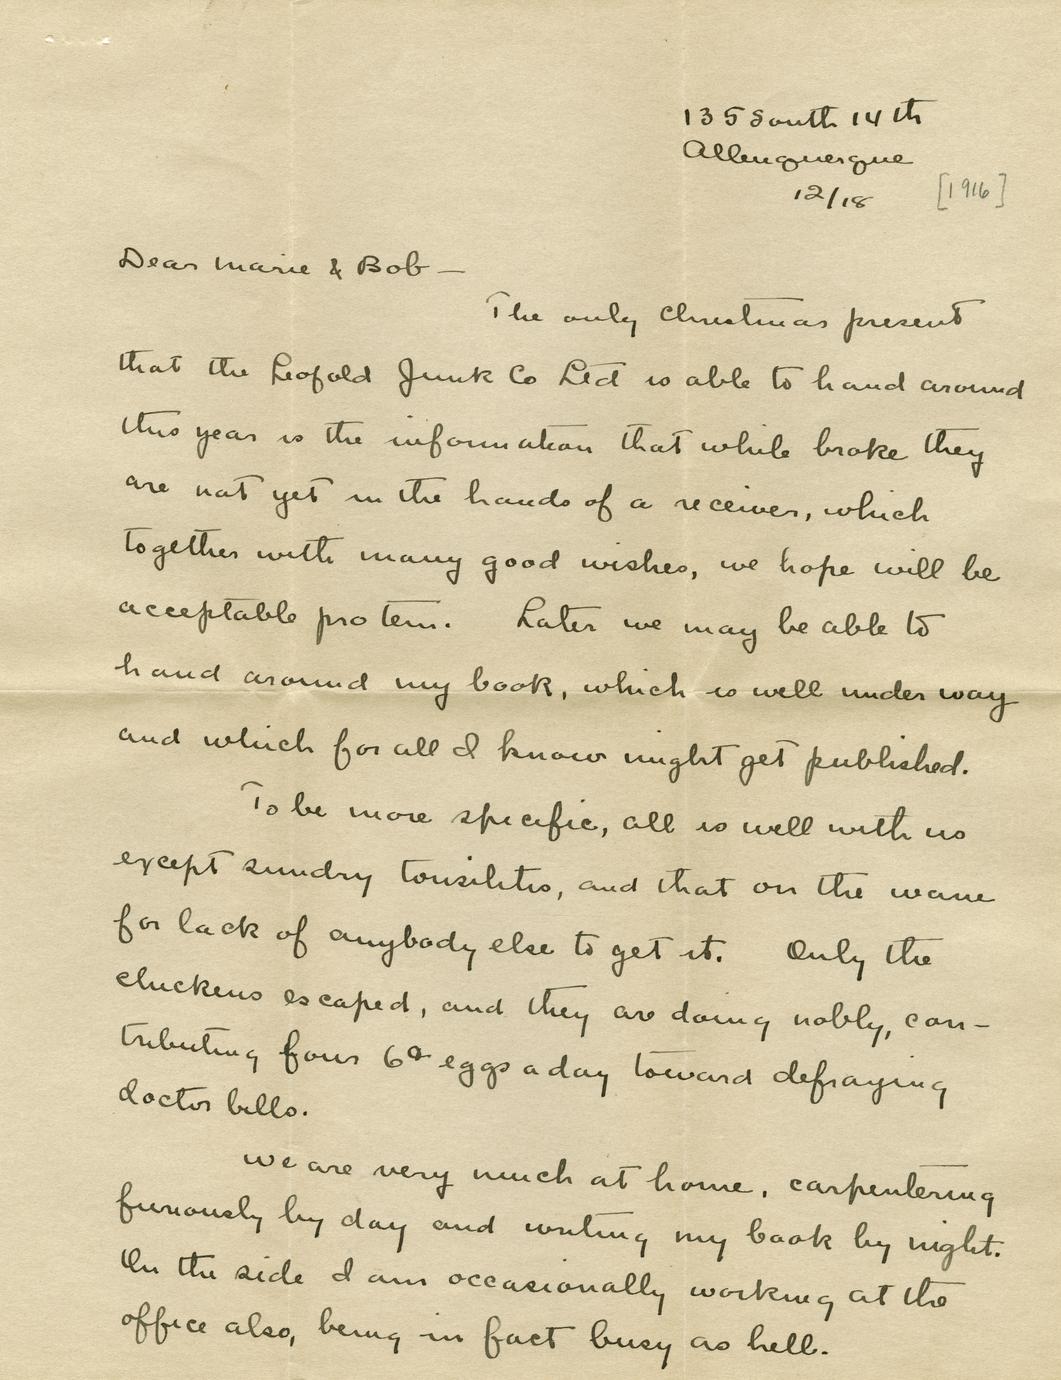 135 South 14th
Albuquerque
12/18 [1916]
Dear Marie & Bob —
The only Christmas present
that the Leopold Junk Co Ltd is able to hand around
this year is the information that while broke they
are not yet in the hands of a receiver, which
together with many good wishes, we hope will be
acceptable pro tem. Later we may be able to
hand around my book, which is well under way
and which for all I know might get published.
To be more specific, all is well with us
except sundry tonsilitis, and that on the wane
for lack of anybody else to get it. Only the
chickens escaped, and they are doing nobly, con-
tributing four 6¢ eggs a day toward defraying
doctor bills.
We are very much at home, carpentering
furiously by day and writing my book by night.
On the side I am occasionally working at the
office also, being in fact busy as hell.